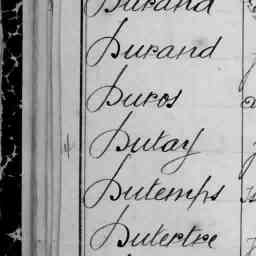 Durand
Durand
Duros
Dutay
Dutemps
Dutertre